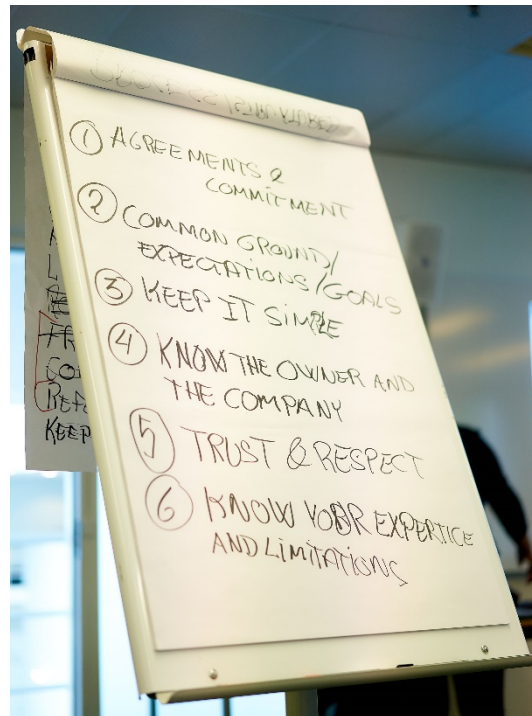 ① AGREEMENTS &
COMMITMENT
② COMMON GROUND/
EXPECTATIONS/GOALS
③ KEEP IT SIMPLE
④ KNOW THE OWNER AND
THE COMPANY
⑤ TRUST & RESPECT
⑥ KNOW YOUR EXPERTICE
AND LIMITATIONS
KEEP